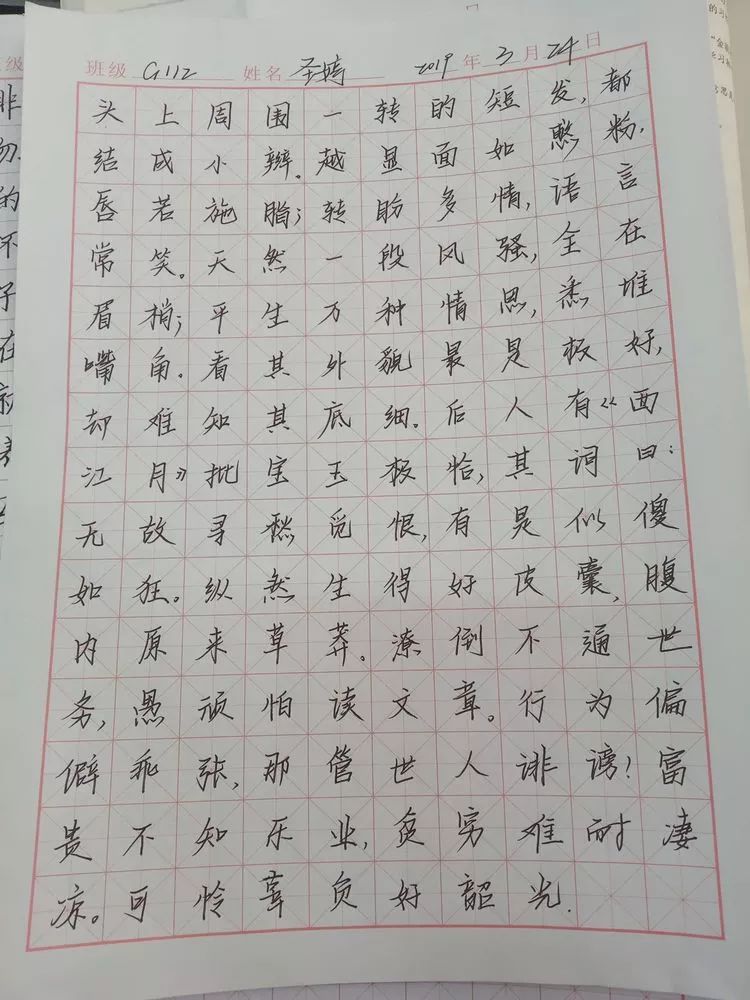 班级 G112 姓名 圣婷 2019 年 3 月 24 日
头上周围一转的短发,都
结成小辫。越显面如憨粉,
唇若施脂;转盼多情,语言
常笑。天然一段风骚,全在
眉梢;平生万种情思,悉堆
嘴角。看其外貌最是极好,
却难知其底细。后人有《西
江月》批宝玉极恰,其词曰:
无故寻愁觅恨,有是似傻
如狂。纵然生得好皮囊,腹
内原来草莽。潦倒不通世
务,愚顽怕读文章。行为偏
僻乖张,那管世人诽谤!富
贵不知乐业,贫穷难耐凄
凉。可怜辜负好韶光.